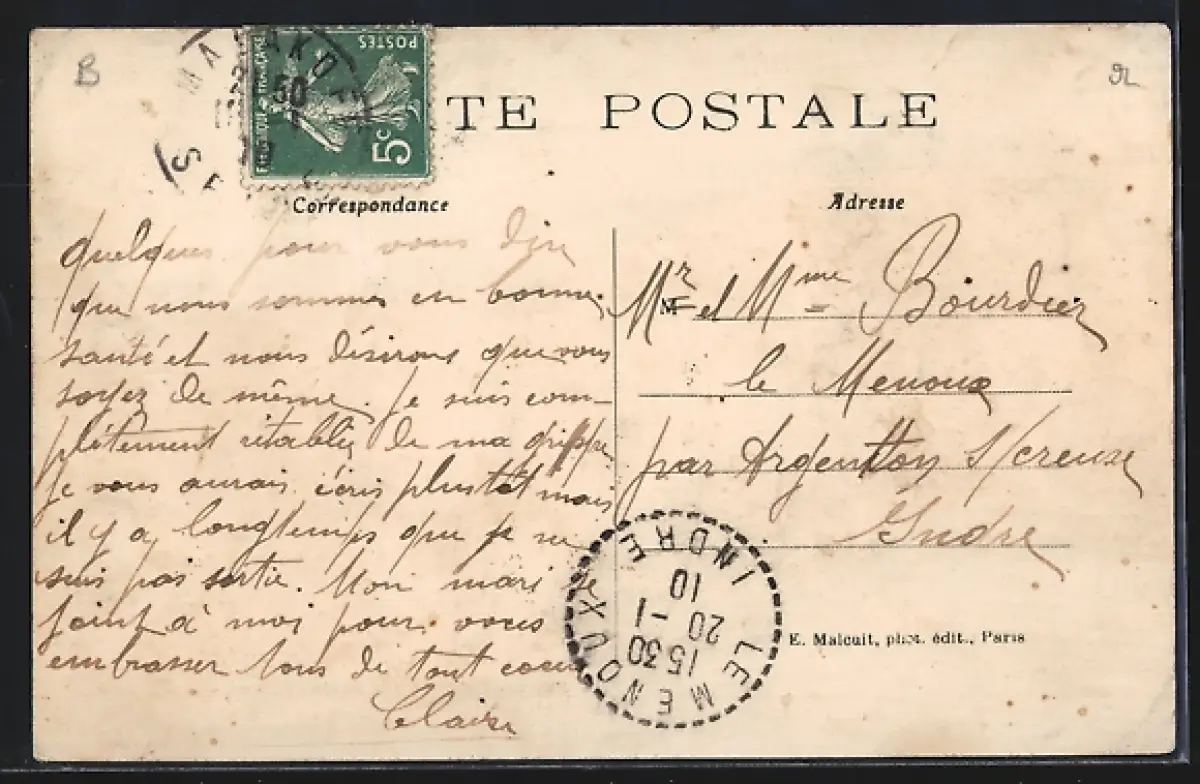 B
MALAKOFF
POSTES
5c
TE POSTALE
Correspondance
quelques pour vous dire
que nous sommes en bonne
santé et nous désirons que vous
soyez de même. Je suis com-
plètement rétablie de ma grippe
je vous aurais écris plustôt mais
il y a longtemps que je ne
suis pas sortie. Mon mari se
joint à moi pour vous
embrasser tous de tout coeur
Claire
Adresse
M
Mr et Mme Bourdier
le Menoux
par Argenton s/creuse
Indre
LE MENOUX
INDRE
15 30
20 -1
10
E. Malcuit, phot. édit., Paris